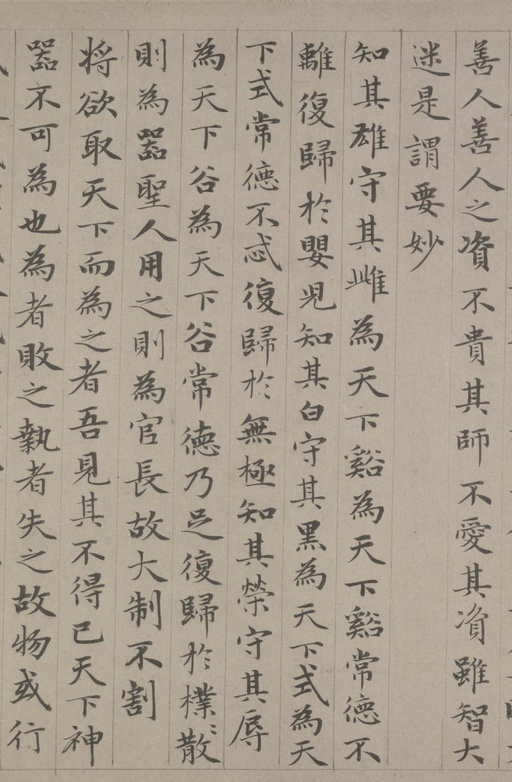 善人善人之資不貴其師不愛其資雖智大
迷是謂要妙
知其雄守其雌為天下谿為天下谿常德不
離復歸於嬰兒知其白守其黑為天下式為天
下式常德不忒復歸於無極知其榮守其辱
為天下谷為天下谷常德乃足復歸於樸〻散
則為器聖人用之則為官長故大制不割
将欲取天下而為之者吾見其不得已天下神
器不可為也為者敗之執者失之故物或行